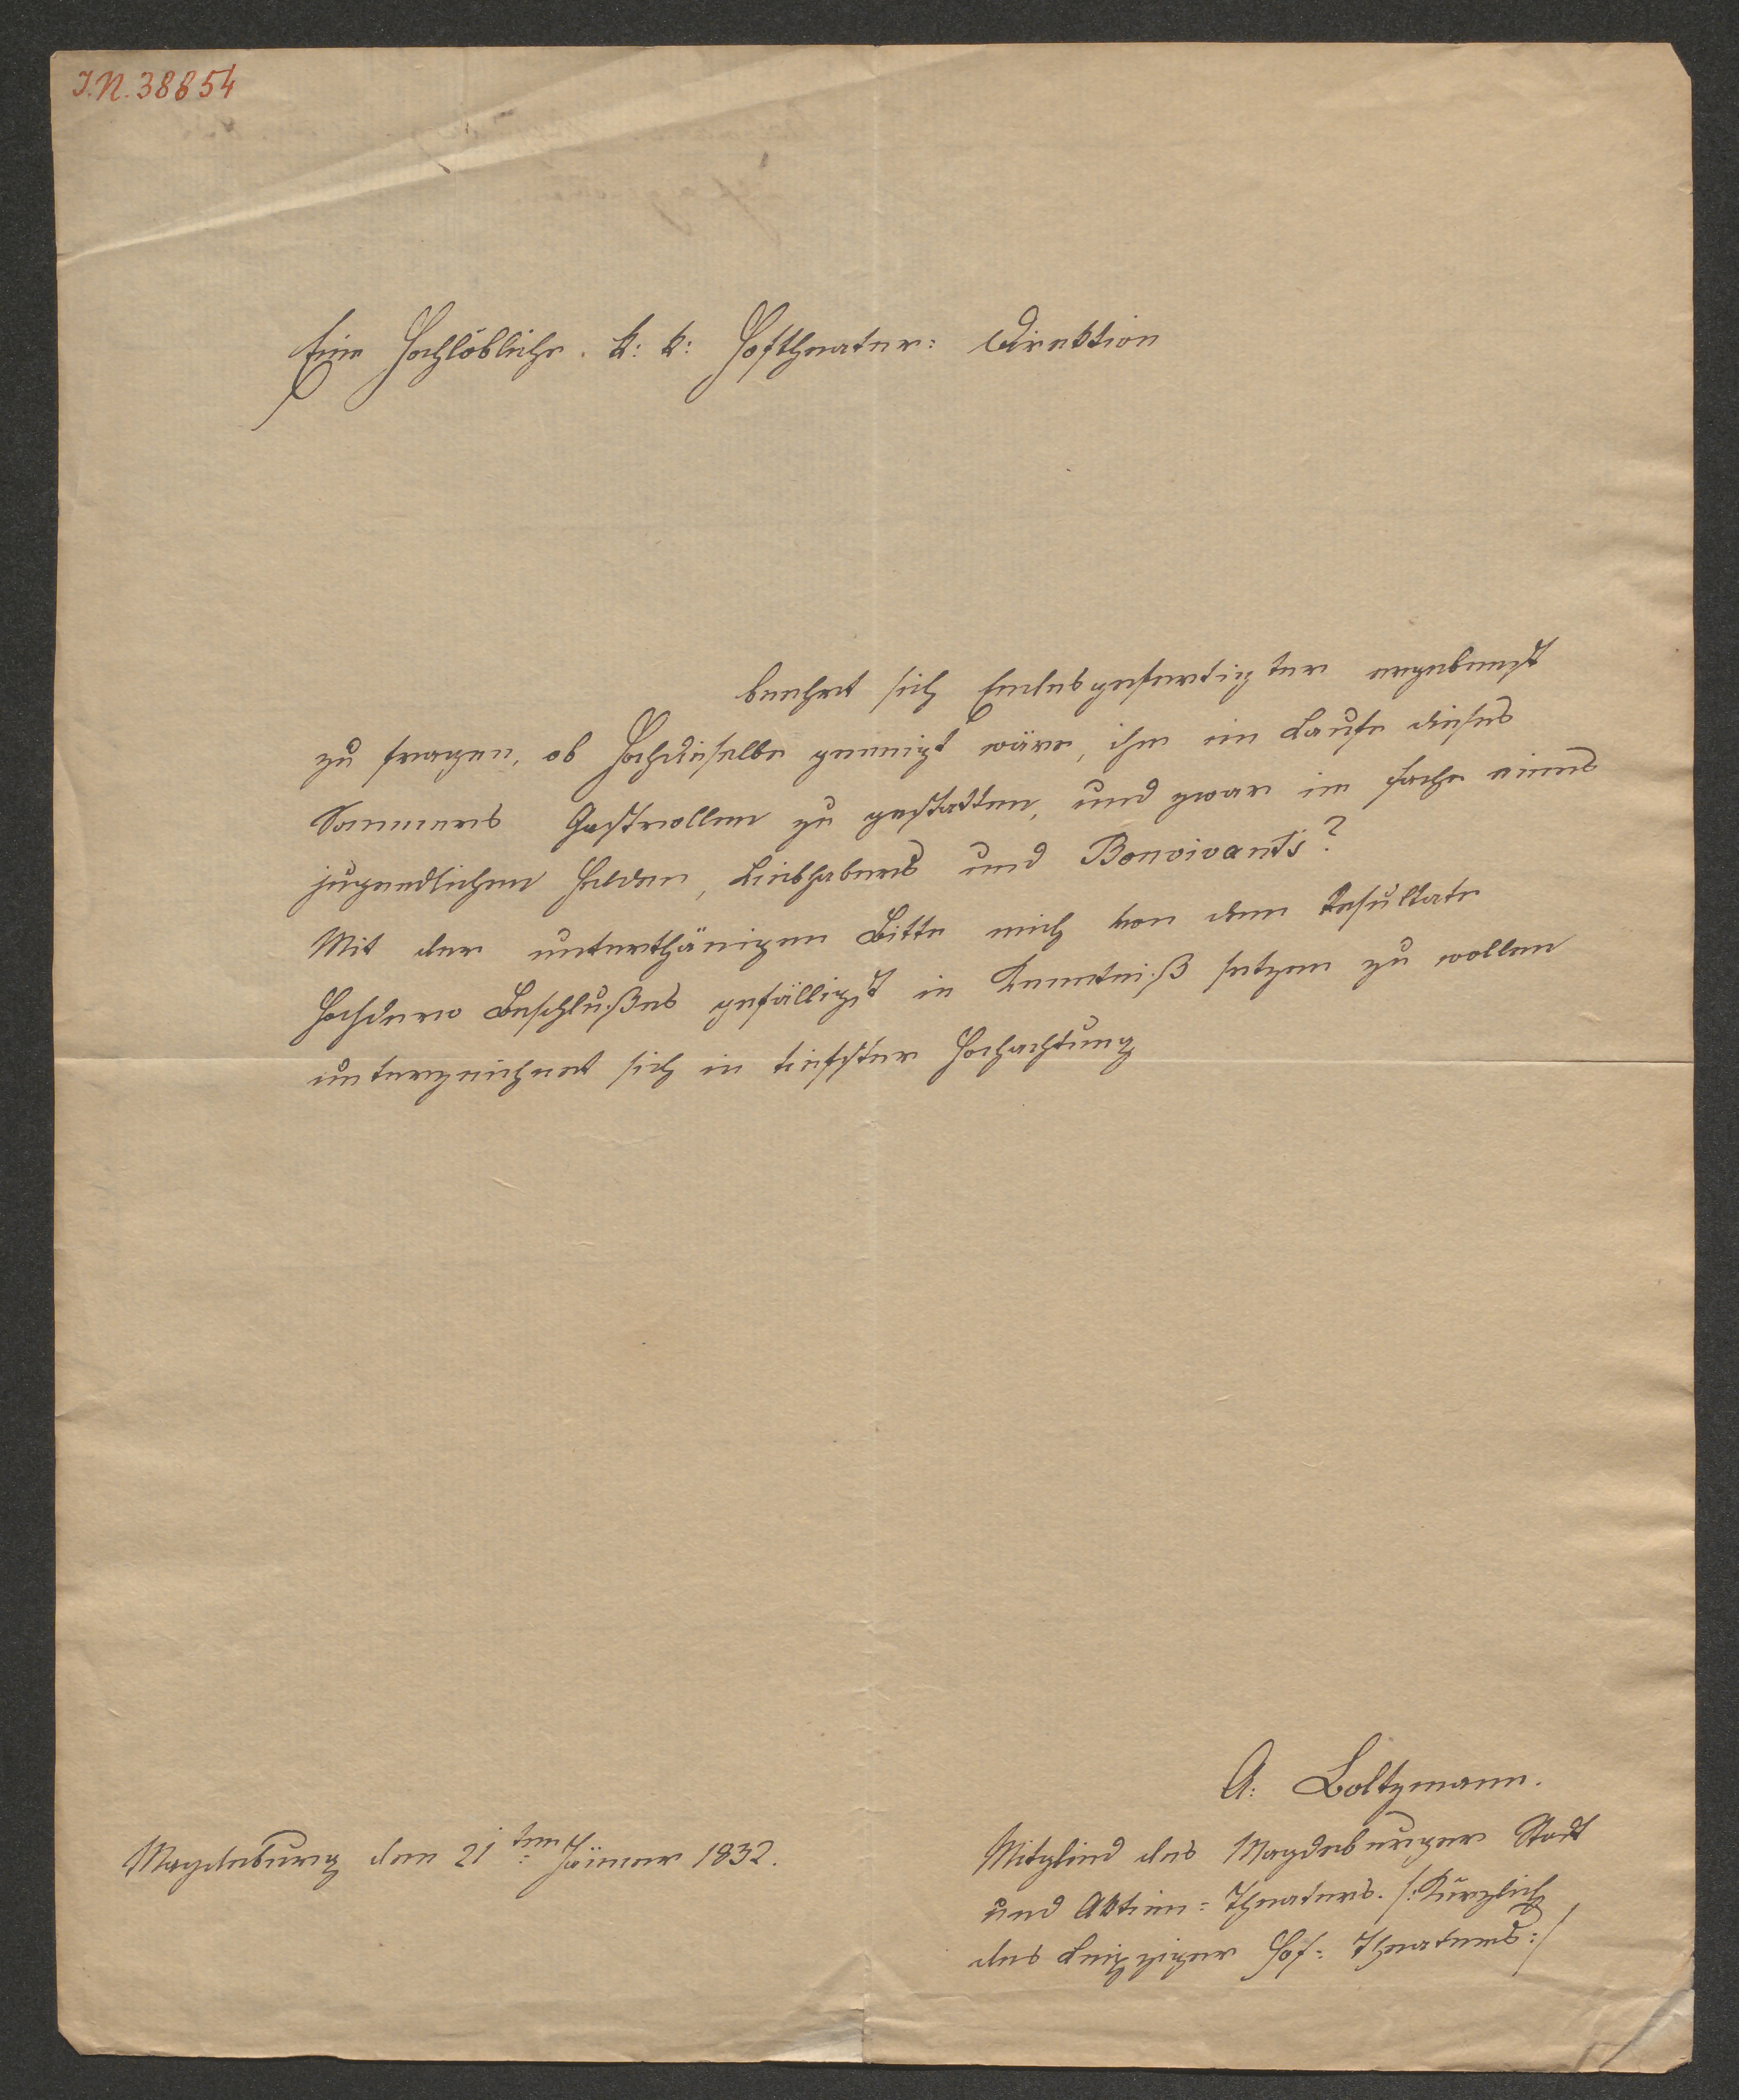 I.N. 38854
Eine Hochlöbliche. k: k: Hoftheater: Direktion
beehrt sich Endesgefertigter ergebenst
zu fragen, ob Hochdieselbe geneigt wäre, ihm im Laufe dieses
Sommers Gastrollen zu gestatten, und zwar im Fache eines
jugendlichen Helden, Liebhabers und Bonvivants?
Mit der unterthänigen Bitte mich von dem Resultate
Hochdero Beschlußes gefälligst in Kenntniß setzen zu wollen
unterzeichnet sich in tiefster Hochachtung
A: Boltzmann.
Mitglied des Magdeburger Stadt
und Aktien: Theaters. /: Kürzlich
des Leipziger Hof: Theaters :/
Magdeburg den 21ten: Jänner 1832.